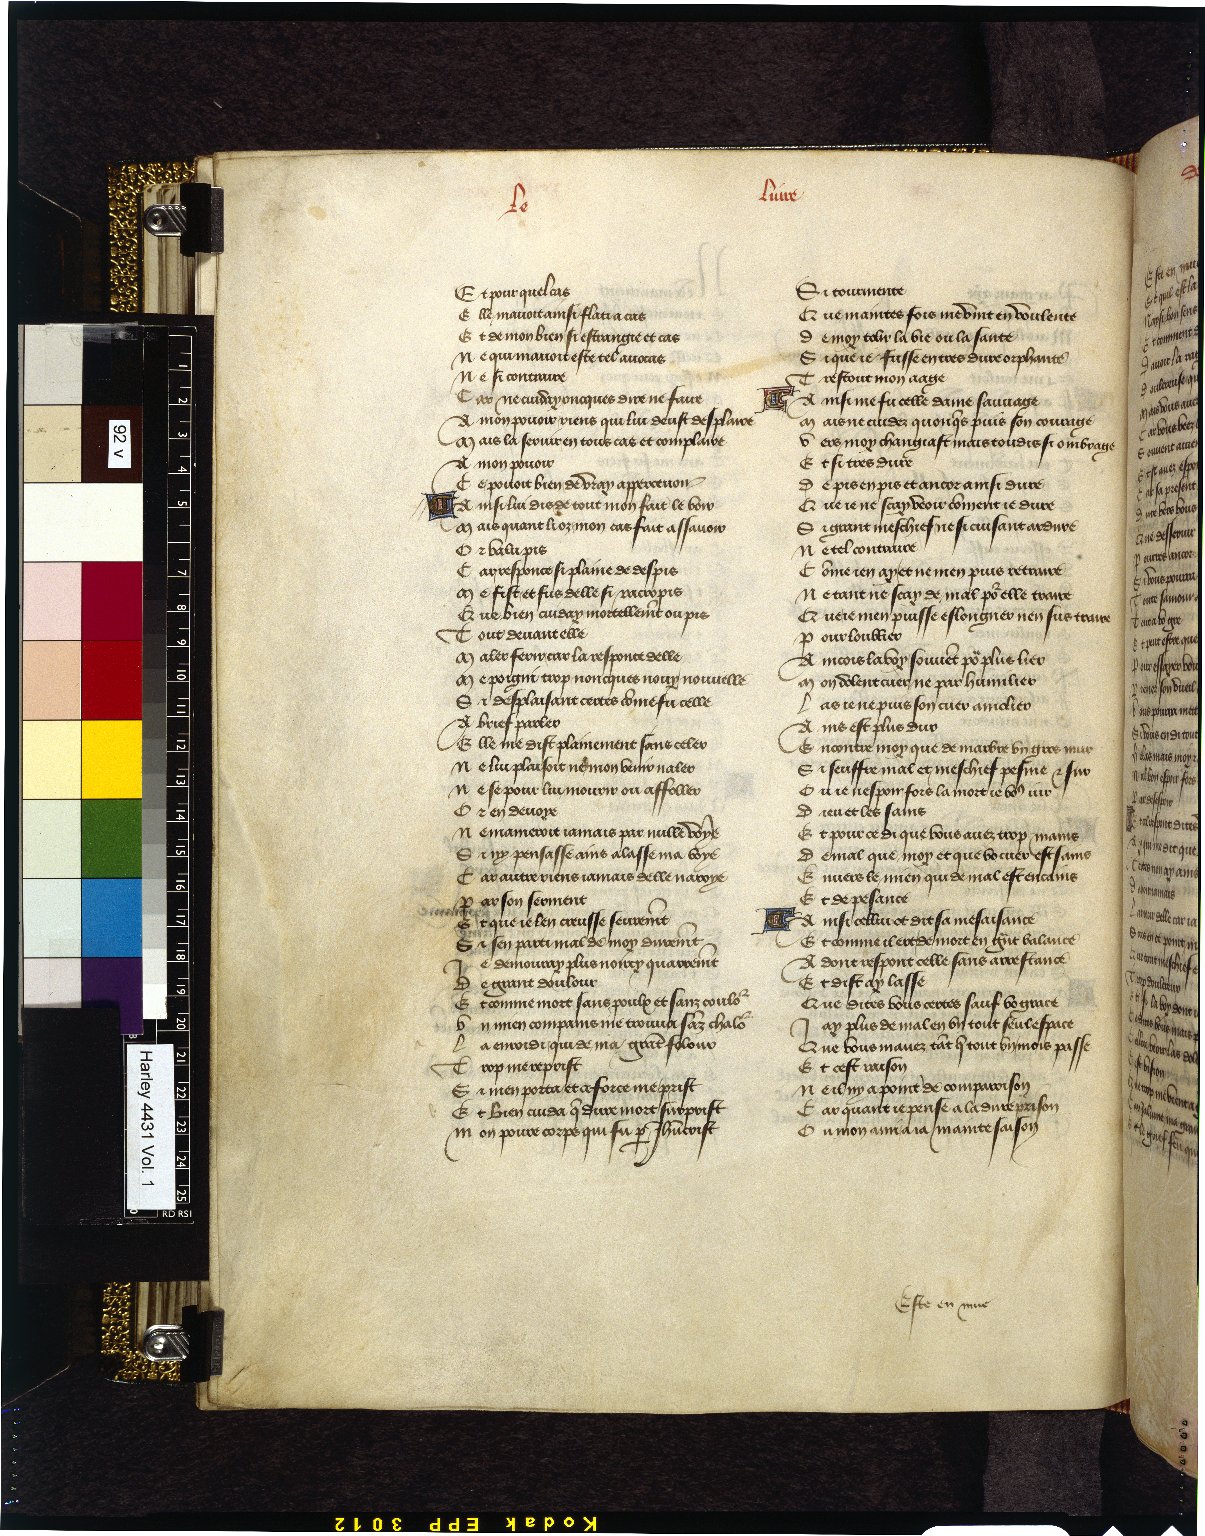 Le Livre
Et pour quel cas
Elle mavoit ainsi flati a cas
Et de mon bien si estrangie et cas
Ne qui mavoit este tel avocas
Ne si contraire
Car ne cuiday oncques dire ne faire
A mon pouoir riens qui lui deust desplaire
Mais la servir en tous cas et complaire
A mon pouoir
Ce pouoit bien de vray appercevoir
Ainsi lui dis de tout mon fait le voir
Mais quant li oz mon cas fait assavoir
Or valu pis
Car responce si plaine de despis
Me fist et fus delle si racropis
Que bien cuiday mortellemt ou pis
Tout devant elle
Maler ferir car la responce delle
Me poigni trop noncques nouy nouvelle
Si desplaisant certes come fu celle
A brief parler
Elle me dist plainement sans celer
Ne lui plaisoit ne mon venir naler
Ne se pour lui mourir ou affoller
Or en devoye
Ne mameroit iamais par nulle voye
Si ny pensasse ains alasse ma voye
Car autre riens iamais delle naroye
Par son serment
Et que ie len creusse seuremt
Si sen parti mal de moy duremt
Je demouray plus noircy quarremt
De grant doulour
Et comme mort sans poulz et sanz coulor
Un mien compains me trouva saz chalor
La enroidi qui de ma grat folour
Trop me reprist
Si men porta et a force me prist
Et bien cuida q dure mort surprist
Mon povre corps qui fu p
Si tourmente
Que maintes fois me vint en voulente
De moy tolir la vie ou la sante
Si que ie fusse en tres dure orphante
Trestout mon aage
Ainsi me fu celle dame sauvage
Mais ne cuidez quonqs puis son courage
Vers moy changiast mais toudis si ombrage
Et si tres dure
De pis en pis et ancor ainsi dure
Que ie ne scay veoir coment ie dure
Si grant meschief ne si cuisant ardure
Ne tel contraire
Come ien ay et ne men puis retraire
Ne tant ne scay de mal por elle traire
Que ie men puisse eslongner nen sus traire
Pour loublier
Aincois la voy souvet por plus lier
Mon dolent cuer ne par humilier
Las ie ne puis son cuer amolier
Ains est plus dur
Encontre moy que de marbre un gros mur
Si seuffre mal et meschief pesme et sur
Ou ie nespoir fors la mort ie vous iur
Dieu et les sains
Et pour ce di que vous avez trop mains
De mal que moy et que vo cuer est sains
Envers le mien qui de mal est encains
Et de pesance
Ainsi cellui et dit sa mesaisance
Et comme il ert de mort en grat balance
Adont respont celle sans arrestance
Et dist ay lasse
Que dites vous certes sauf vo grace
Jay plus de mal en un tout seul espace
Que vous navez tat q tout un mois passe
Et cest raison
Ne il ny a point de comparoison
Car quant ie pense a la dure prison
Ou mon ami a ia mainte saison
Este en mue
92 v
Harley 4431 Vol. 1
1
2
3
4
5
7
8
9
10
11
12
13
14
15
16
17
18
19
20
21
22
23
24
25
RD RSI
Kodak EPP 3012